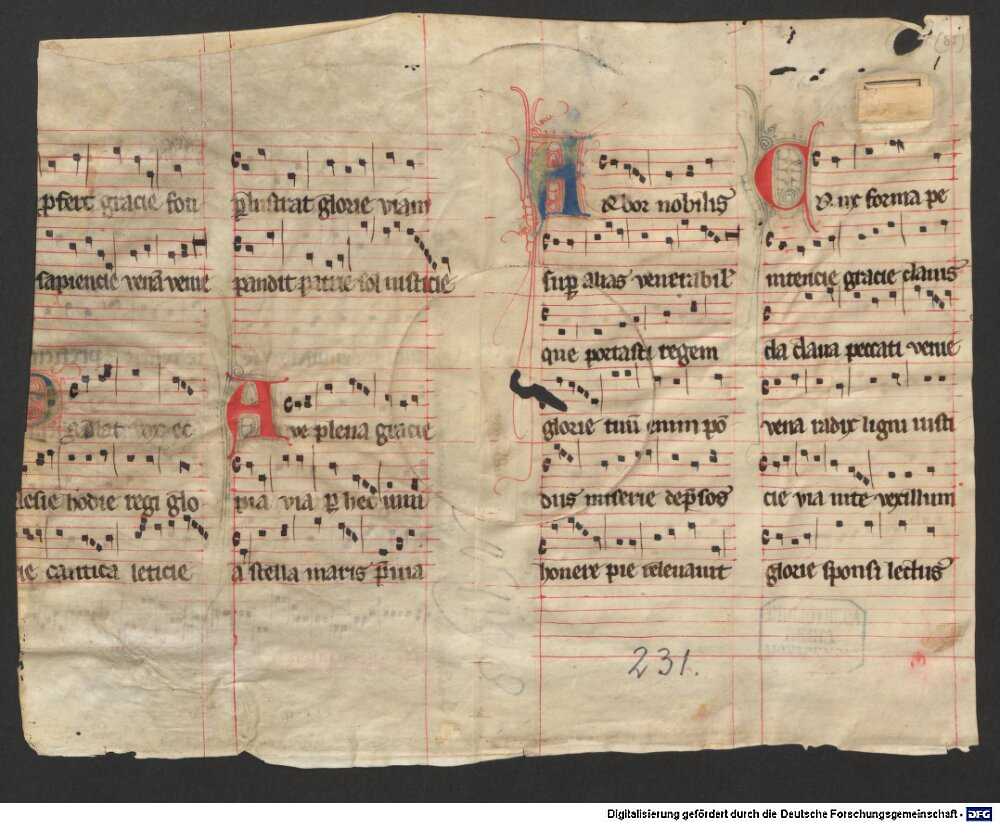 pfert gracie fon
sapiencie vena venie
vox ec
clesie hodie regi glo
rie cantica leticie
plustrat glorie viam
pandit patrie sol iusticie
Ave plena gracie
pia via p hec
a stella maris
Arbor nobilis
sup alias venerabil
que portasti regem
glorie tuū enim pō
dus miserie depsos
honere pie relevavit
Crux forma pe
nitencie gracie clavis
clava peccati venie
vena radix ligni iusti
cie via vite vexillum
glorie sponsi lectus
231.
Digitalisierung gefördert durch die Deutsche Forschungsgemeinschaft - DFG